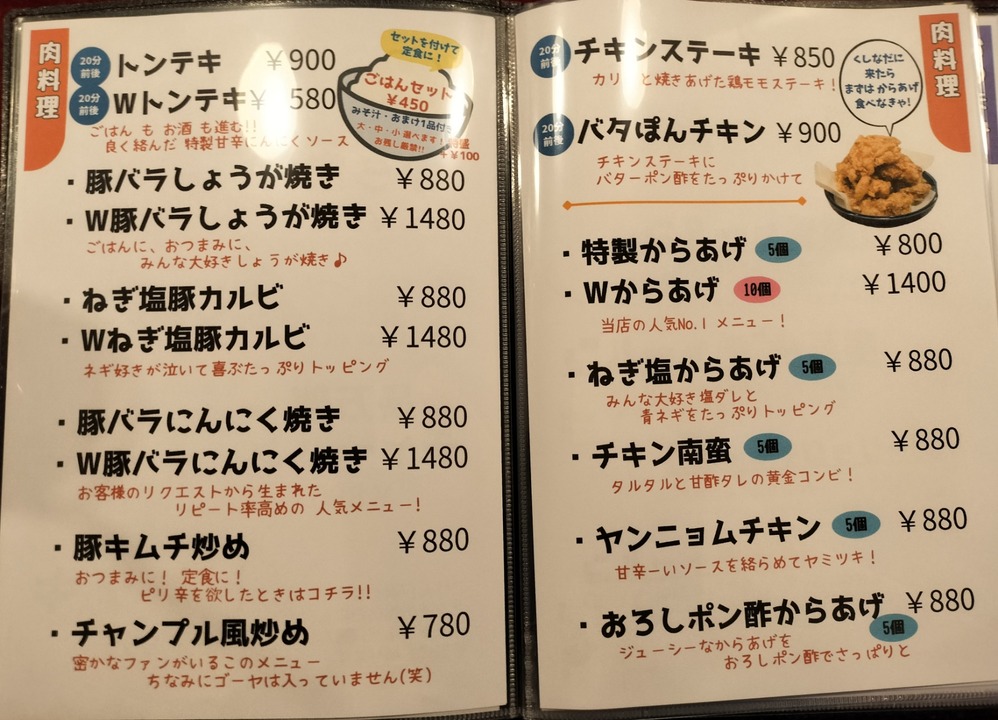 肉料理
20分前後
トンテキ ￥900
20分前後
Wトンテキ￥ 580
ごはん も お酒 も進む!!
良く絡んだ 特製甘辛にんにく ソース
セットを付けて
定食に!
ごはんセット
￥450
みそ汁・おまけ1品付き
大・中・小 選べます!
お残し厳禁!!
+￥100
・豚バラしょうが焼き ￥880
・W豚バラしょうが焼き ￥1480
ごはんに、おつまみに、
みんな大好きしょうが焼き♪
・ねぎ塩豚カルビ ￥880
・Wねぎ塩豚カルビ ￥1480
ネギ好きが泣いて喜ぶたっぷりトッピング
・豚バラにんにく焼き ￥880
・W豚バラにんにく焼き ￥1480
お客様のリクエストから生まれた
リピート率高めの 人気メニュー!
・豚キムチ炒め ￥880
おつまみに! 定食に!
ピリ辛を欲したときはコチラ!!
・チャンプル風炒め ￥780
密かなファンがいるこのメニュー
ちなみにゴーヤは入っていません(笑)
肉料理
20分前後
チキンステーキ ￥850
カリ と焼きあげた鶏モモステーキ!
くしなだに
来たら
まずは からあげ
食べなきゃ!
20分前後
バタぽんチキン ￥900
チキンステーキに
バターポン酢をたっぷりかけて
・特製からあげ 5個 ￥800
・Wからあげ 10個 ￥1400
当店の人気No.1 メニュー!
・ねぎ塩からあげ 5個 ￥880
みんな大好き塩ダレと
青ネギをたっぷりトッピング
・チキン南蛮 5個 ￥880
タルタルと甘酢タレの黄金コンビ!
・ヤンニョムチキン 5個 ￥880
甘辛ーいソースを絡らめてヤミツキ!
・おろしポン酢からあげ ￥880
5個
ジューシーなからあげを
おろしポン酢でさっぱりと